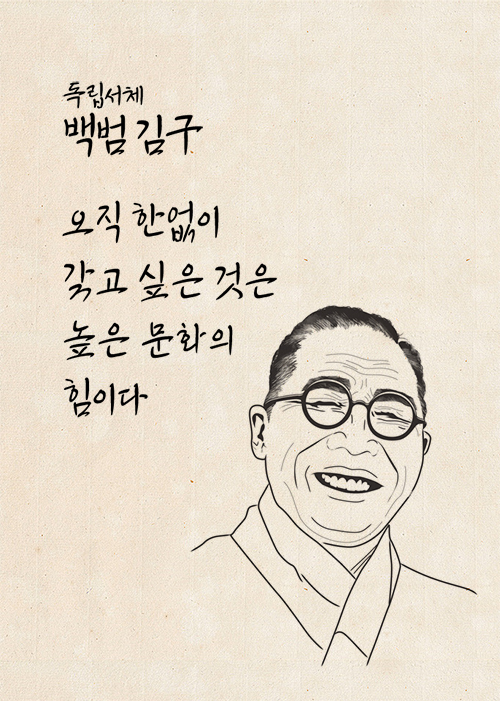 독립서체
백범 김구
오직 한없이
갖고 싶은 것은
높은 문화의
힘이다